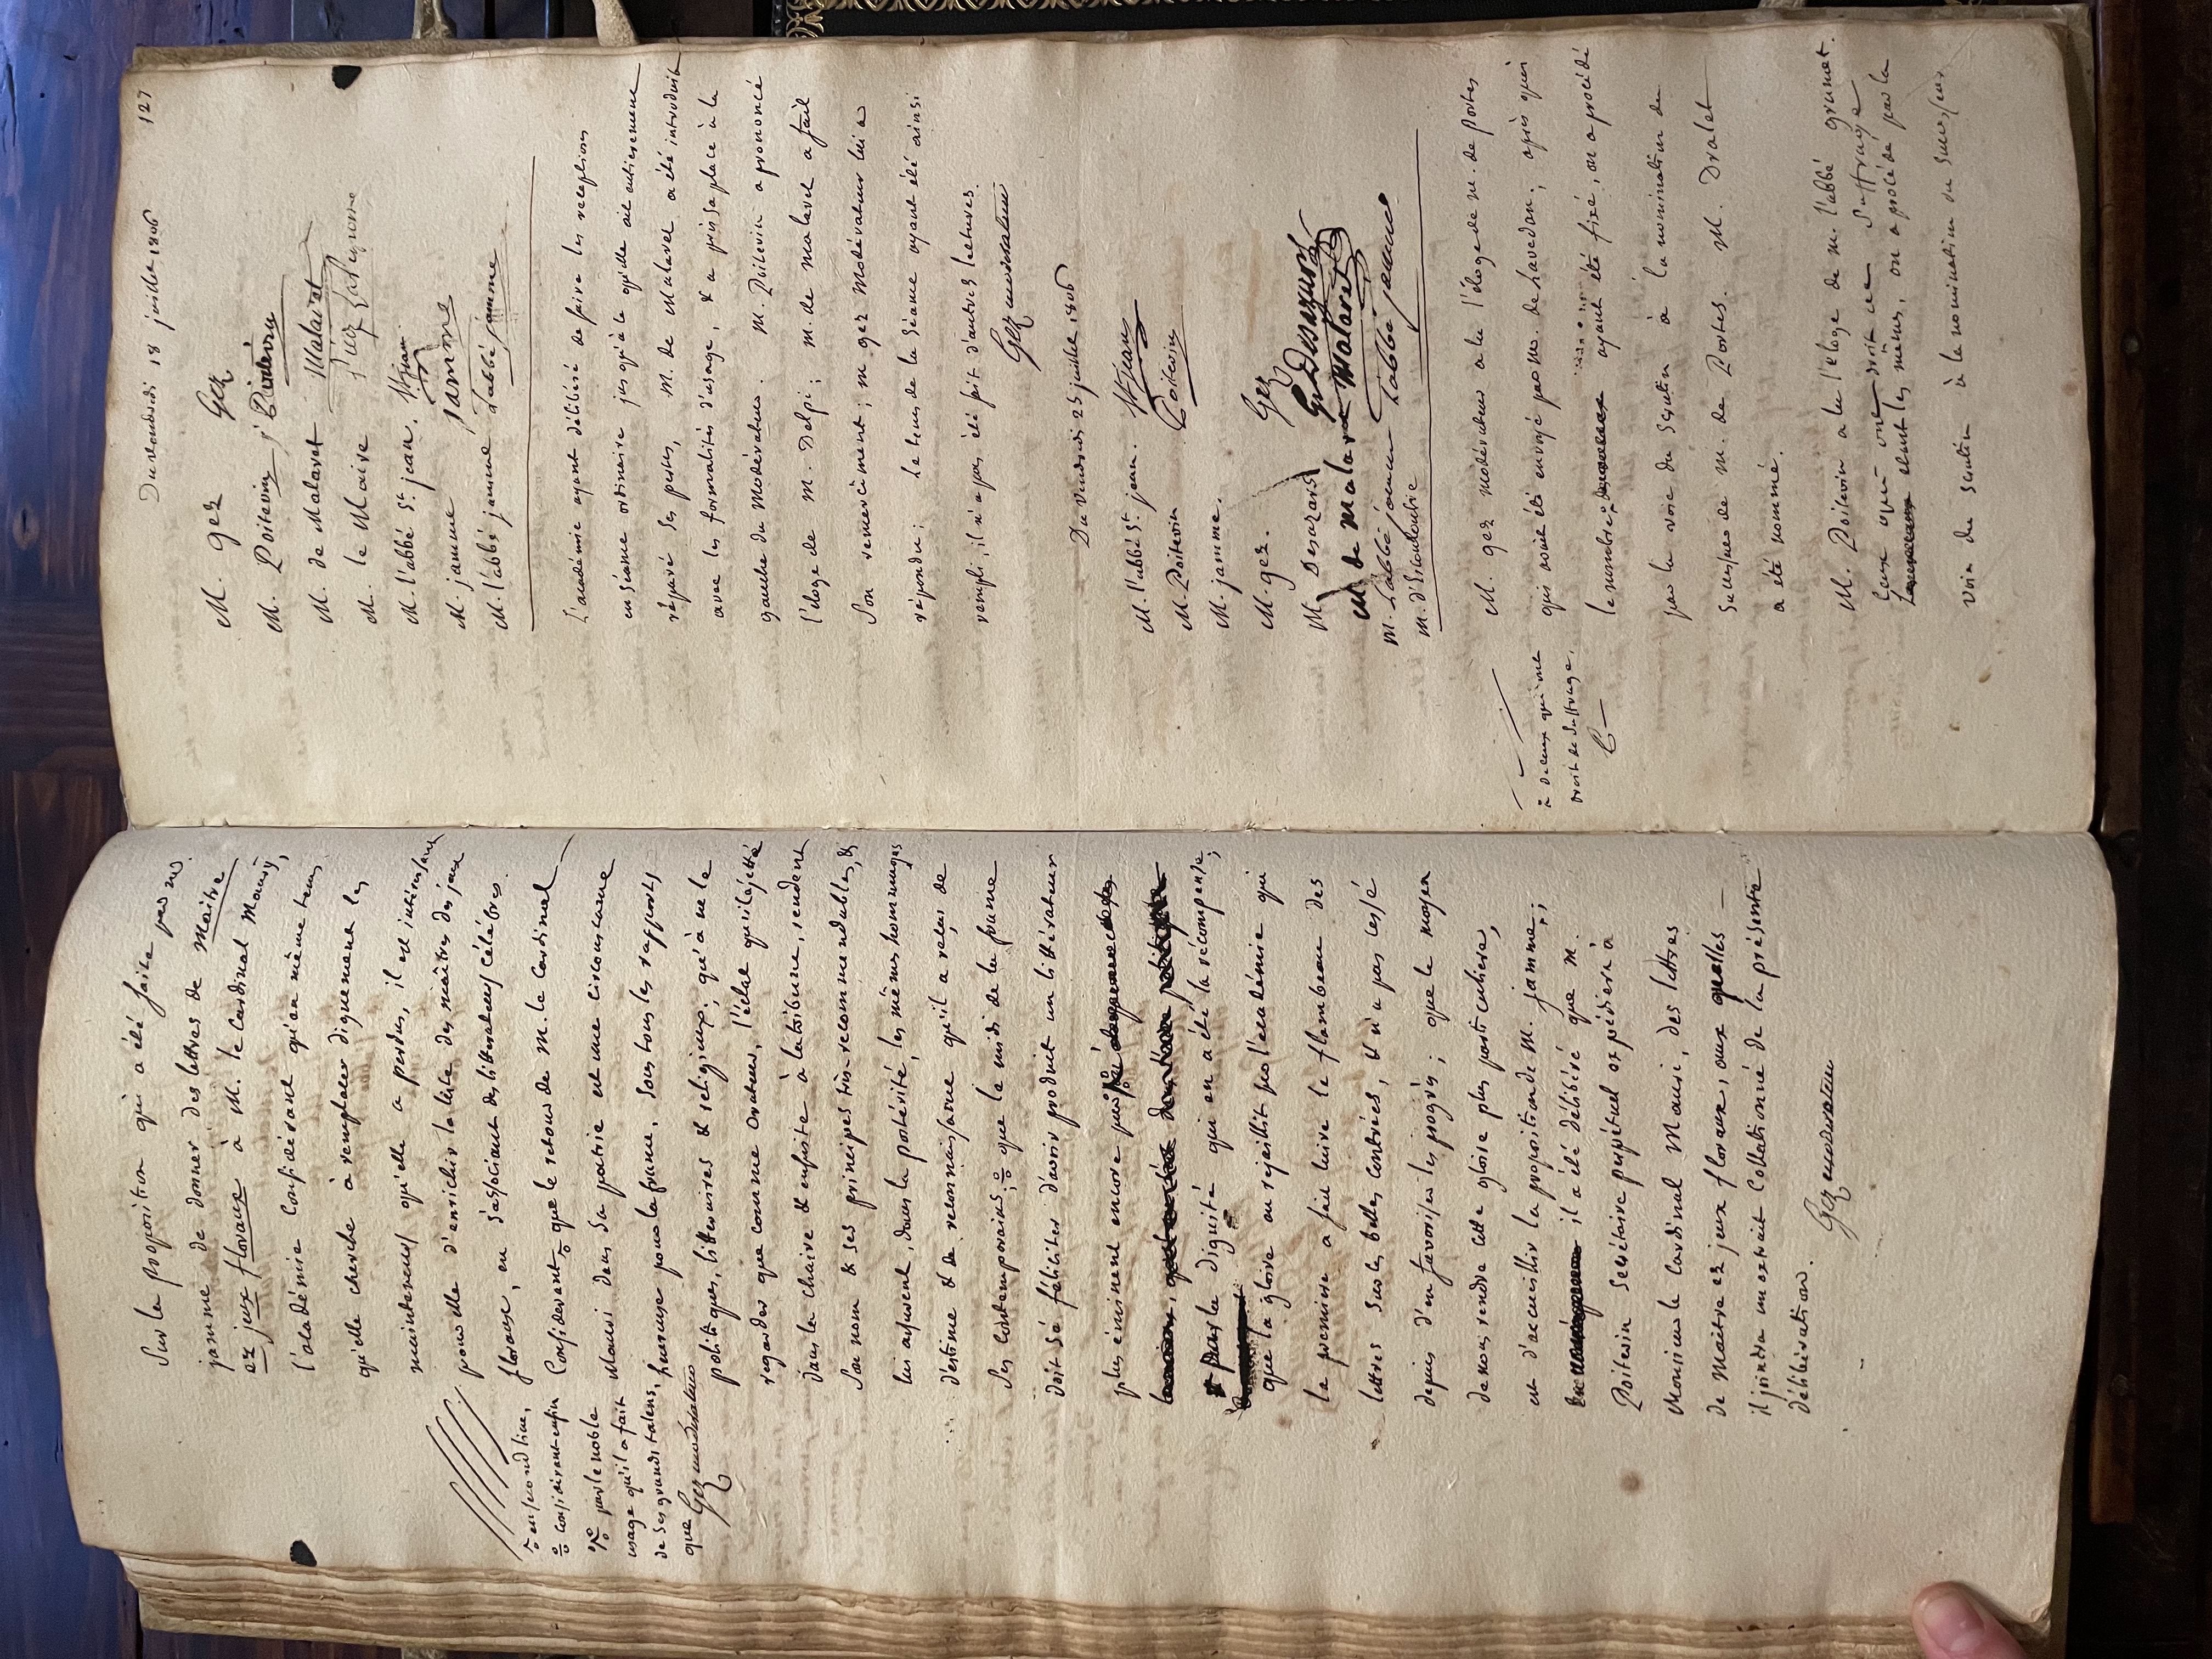 Sur la proposition qui a été faite par m.
jamme de donner des lettres de Maitre
ez jeux floraux à M. le Cardinal Mauri,
l'académie considérant qu'en même tems
qu'elle cherche à remplacer dignement les
mainteneurs qu'elle a perdus, il est intéressant
pour elle d'enrichir la liste des maîtres des jeux
floraux, en s'associant des littérateurs célèbres.
Considerant que le retour de M. le Cardinal
Mauri dans sa patrie est une circonstance
heureuse pour la france, sous tous les rapports
politiques, littéraires & religieux; qu'à ne le
regarder que comme orateur, l'éclat qu'il a jetté
dans la chaire & ensuite à la tribune, rendent
son nom & ses principes très-recommendables, &
lui assurent, dans la postérité, les mêmes hommages
d'estime & de reconnaissance qu'il a reçus de
ses contemporains; que le midi de la france
doit se féliciter d'avoir produit un littérateur
plus éminent encore
par la dignité qui en a été la récompense;
que la gloire en rejaillit sur l'académie qui
la premiere a fait luire le flambeau des
lettres sur les belles contrées, & n'a pas cessé
depuis d'en favoriser les progrès; que le moyen
de nous rendre cette gloire plus particuliere,
est d'accueillir la proposition de M. jamme;
il a été délibéré que M.
Poitevin Secrétaire perpétuel expédiera à
Monsieur le Cardinal Mauri, des lettres
de Maitre ez jeux floraux, aux quelles
il joindra un extrait Collationné de la présente
délibération.
Gez moderateur
en second lieu,
considérant enfin
par le noble
usage qu'il a fait
de ses grands talens,
que Gez moderateur
127
Du vendredi 18 juillet 1806
M. gez Gez
M. Poitevin Poitevin
M. de Malaret Malaret
M. le Maire
M. l'abbé St. jean. St jean
M. jamme jamme
M. l'abbé jamme L'abbé jamme
L'académie ayant délibéré de faire les receptions
en séance ordinaire jusqu'à ce qu'elle ait entierement
réparé ses pertes, M. de Malaret a été introduit
avec les formalités d'usage, & a pris sa place à la
gauche du Modérateur. M. Poitevin a prononcé
l'éloge de M. Delpi; M. de malaret a fait
son remerciment; M. gez Modérateur lui a
répondu; Le tems de la séance ayant été ainsi
rempli, il n'a pas été fait d'autres lectures.
Gez moderateur
Du Vendredi 25 juillet, 1806
M. l'abbé St. jean. St jean
M. Poitevin Poitevin
M. jamme.
M. gez. Gez
M. Desazars Desazars
M de Malaret Malaret
M. L'abbé jamme L'abbé jamme
M. d'Escouloubre
M. gez modérateur a lu l'éloge de M. de Portes
qui avait été envoyé par M. de Lavedan; après quoi
le nombre ayant été fixé, on a procédé
par la voie du Scrutin à la nomination du
Successeur de M. de Portes. M. Dralet
a été nommé.
M. Poitevin a lu l'éloge de M. l'abbé grumet.
Ceux qui ont droit de Suffrage
étant les mêmes, on a procédé par la
voie du scrutin à la nomination du Successeur
de ceux qui ont
droit de suffrage.
G